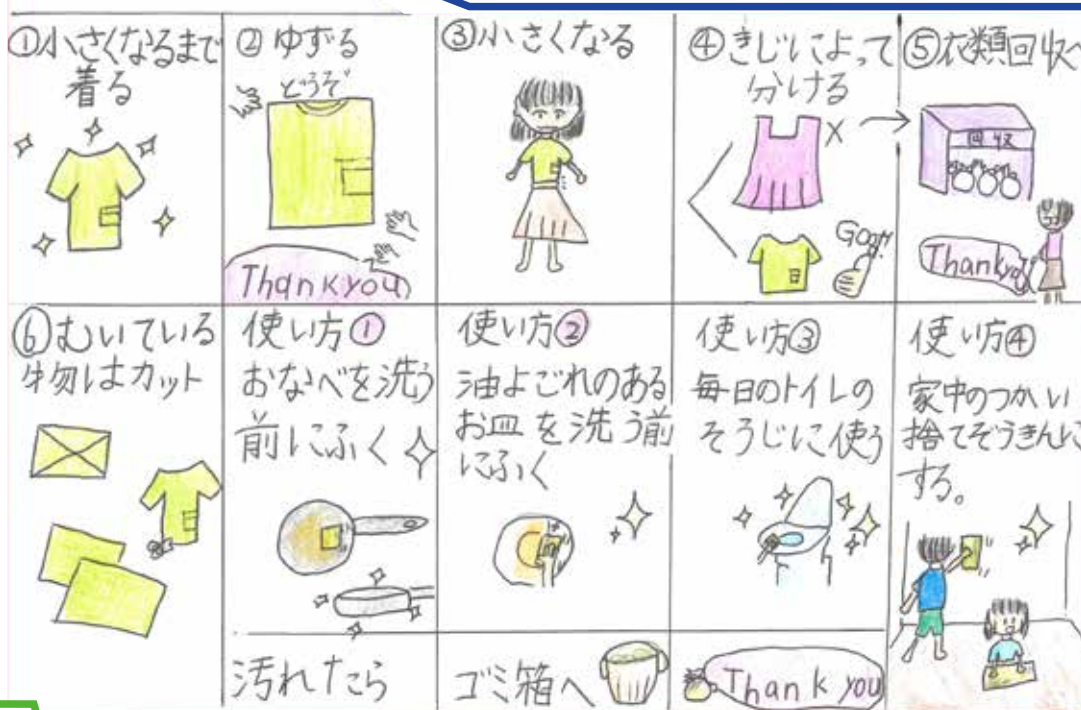 ①小さくなるまで
着る
②ゆずる
どうぞ
Thank you
③小さくなる
④きじによって
分ける
×
Goo!!
⑤衣類回収へ
回収
Thank you
⑥むいている
物はカット
使い方①
おなべを洗う
前にふく
使い方②
油よごれのある
お皿を洗う前
にふく
使い方③
毎日のトイレの
そうじに使う
使い方④
家中のつかい
捨てぞうきんに
する。
汚れたら
ゴミ箱へ
Thank you